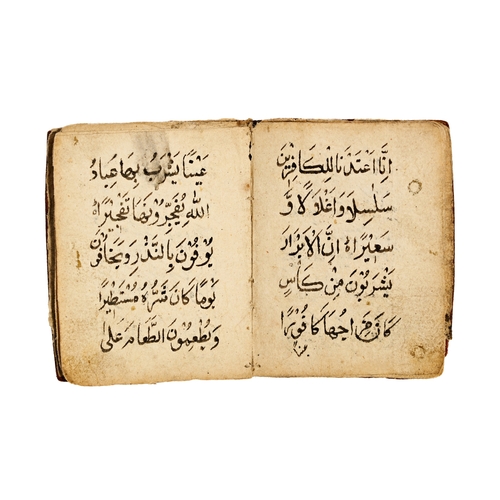 انا اعتدنا للكافرين
سلسلا واغلالا و
سعيرا ان الابرار
يشربون من كأس
كان مزاجها كافورا
عينا
عينا يشرب بها عباد
الله يفجرونها تفجيرا
يوفون بالنذر ويخافون
يوما كان شره مستطيرا
ويطعمون الطعام على